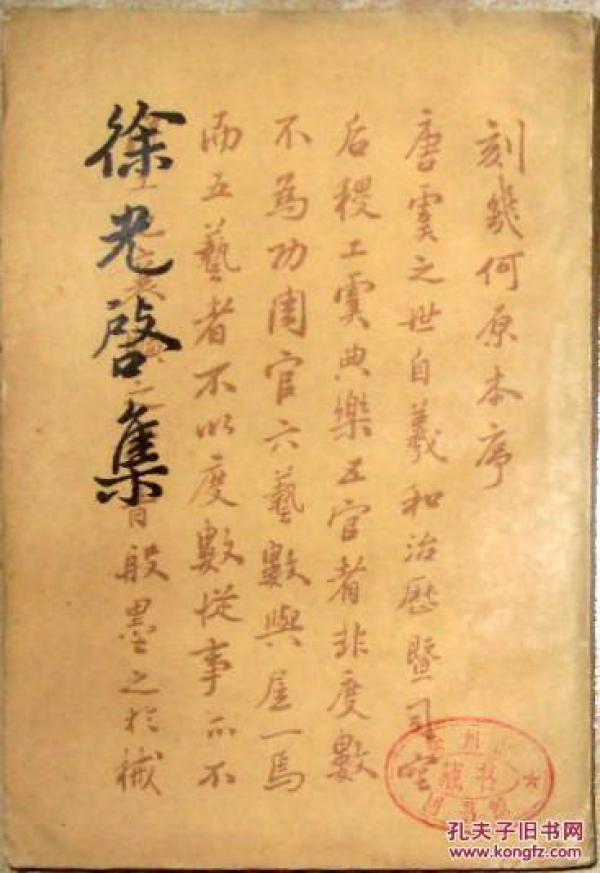 刻幾何原本序
唐虞之世自羲和治歷暨司空
后稷工虞典樂五官者非度數
不為功周官六藝數與居一焉
而五藝者不以度數從事亦不
般墨之於械
徐光啓集
藏书
孔夫子旧书网
www.kongfz.com